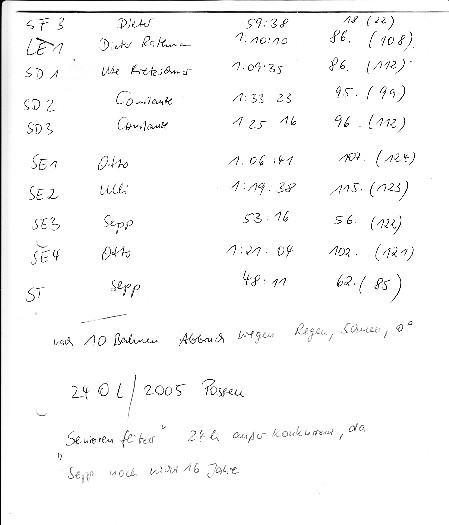 SF 3 Dieter 59:38 18 (22)
LE 1 Dieter 1:10:10 86. (108)
SD 1 Ute 1:09:35 86. (112)
SD2 Constante 1:33 23 95. (99)
SD3 Constante 1 25 16 96. (112)
SE1 Otto 1.06:41 107. (124)
SE2 Ulli 1:19.38 115. (123)
SE3 Sepp 53.16 56. (122)
SE4 Otto 1:21.04 102. (121)
ST Sepp 48:11 62. (85)
nach 10 Bahnen Abbruch wegen Regen, Schnee, 0°
24 OL / 2005 Possen
"Senioren 24h außer Konkurrenz, da
Sepp noch nicht 16 Jahre